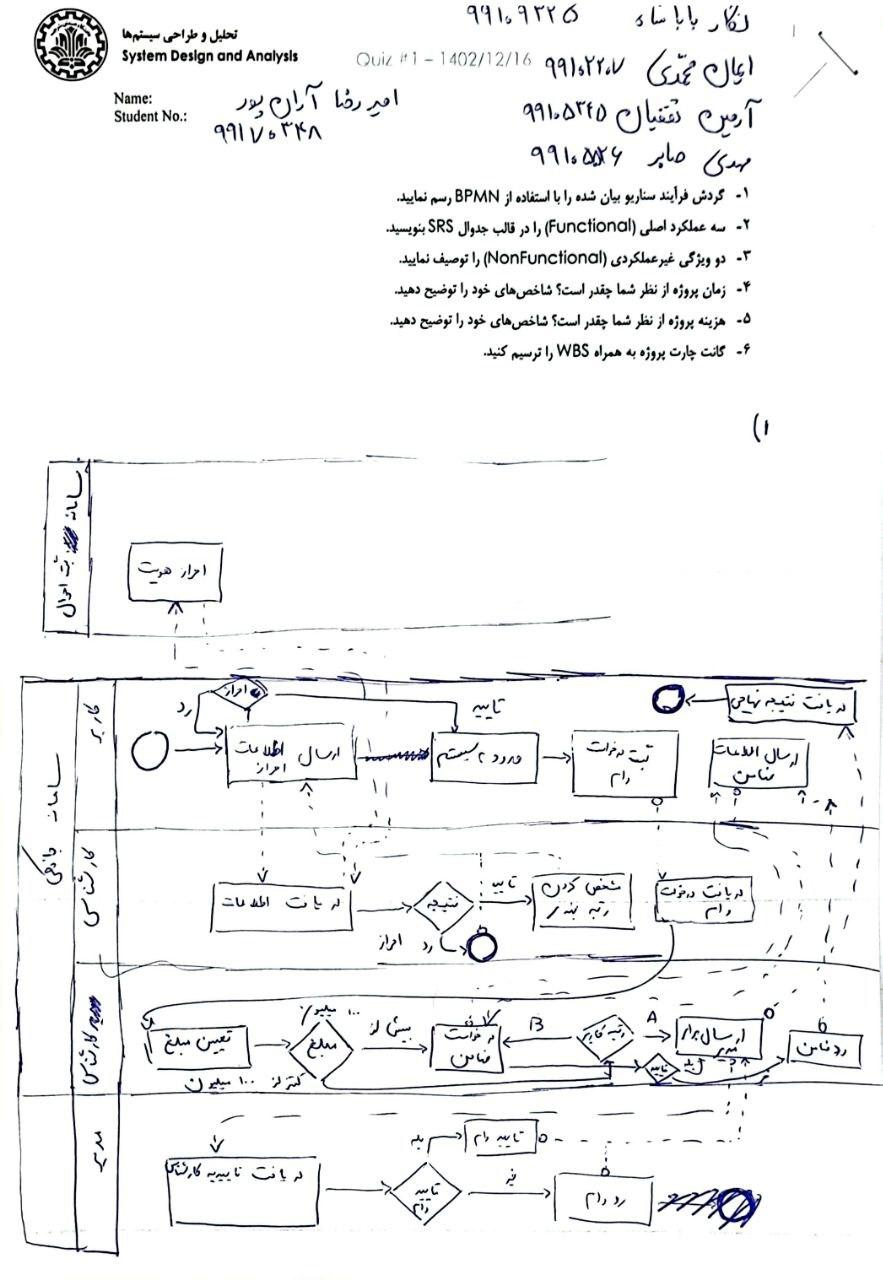 تحلیل و طراحی سیستم‌ها
System Design and Analysis
Quiz #1 – 1402/12/16
نگار باباشاه ۹۹۱۰۹۳۲۵
ایمان محمدی ۹۹۱۰۲۲۰۷
Name: امیررضا آران پور
Student No.: ۹۹۱۷۰۳۴۸
آرمین ثقفیان ۹۹۱۰۵۳۴۵
مهدی صابر ۹۹۱۰۵۵۲۶
۱- گردش فرآیند سناریو بیان شده را با استفاده از BPMN رسم نمایید.
۲- سه عملکرد اصلی (Functional) را در قالب جدوال SRS بنویسید.
۳- دو ویژگی غیرعملکردی (NonFunctional) را توصیف نمایید.
۴- زمان پروژه از نظر شما چقدر است؟ شاخص‌های خود را توضیح دهید.
۵- هزینه پروژه از نظر شما چقدر است؟ شاخص‌های خود را توضیح دهید.
۶- گانت چارت پروژه به همراه WBS را ترسیم کنید.
۱)
سامانه ثبت احوال
احراز هویت
سامانه
کاربر
احراز
رد
تایید
دریافت نتیجه نهایی
ارسال اطلاعات
احراز
ورود به سیستم
ثبت درخواست
وام
ارسال اطلاعات
ضامن
کارشناس
دریافت اطلاعات
نتیجه
تایید
مشخص کردن
رتبه بندی
دریافت درخواست
وام
رد احراز
کارشناس
تعیین مبلغ
۱۰۰ میلیون
مبلغ
بیش از
درخواست
ضامن
B
رتبه کاربر
A
ارسال برای
مدیر
رد ضامن
تایید
بله
خیر
کمتر از ۱۰۰ میلیون
مدیر
دریافت تاییدیه کارشناس
تایید
وام
بله
تایید وام
خیر
رد وام